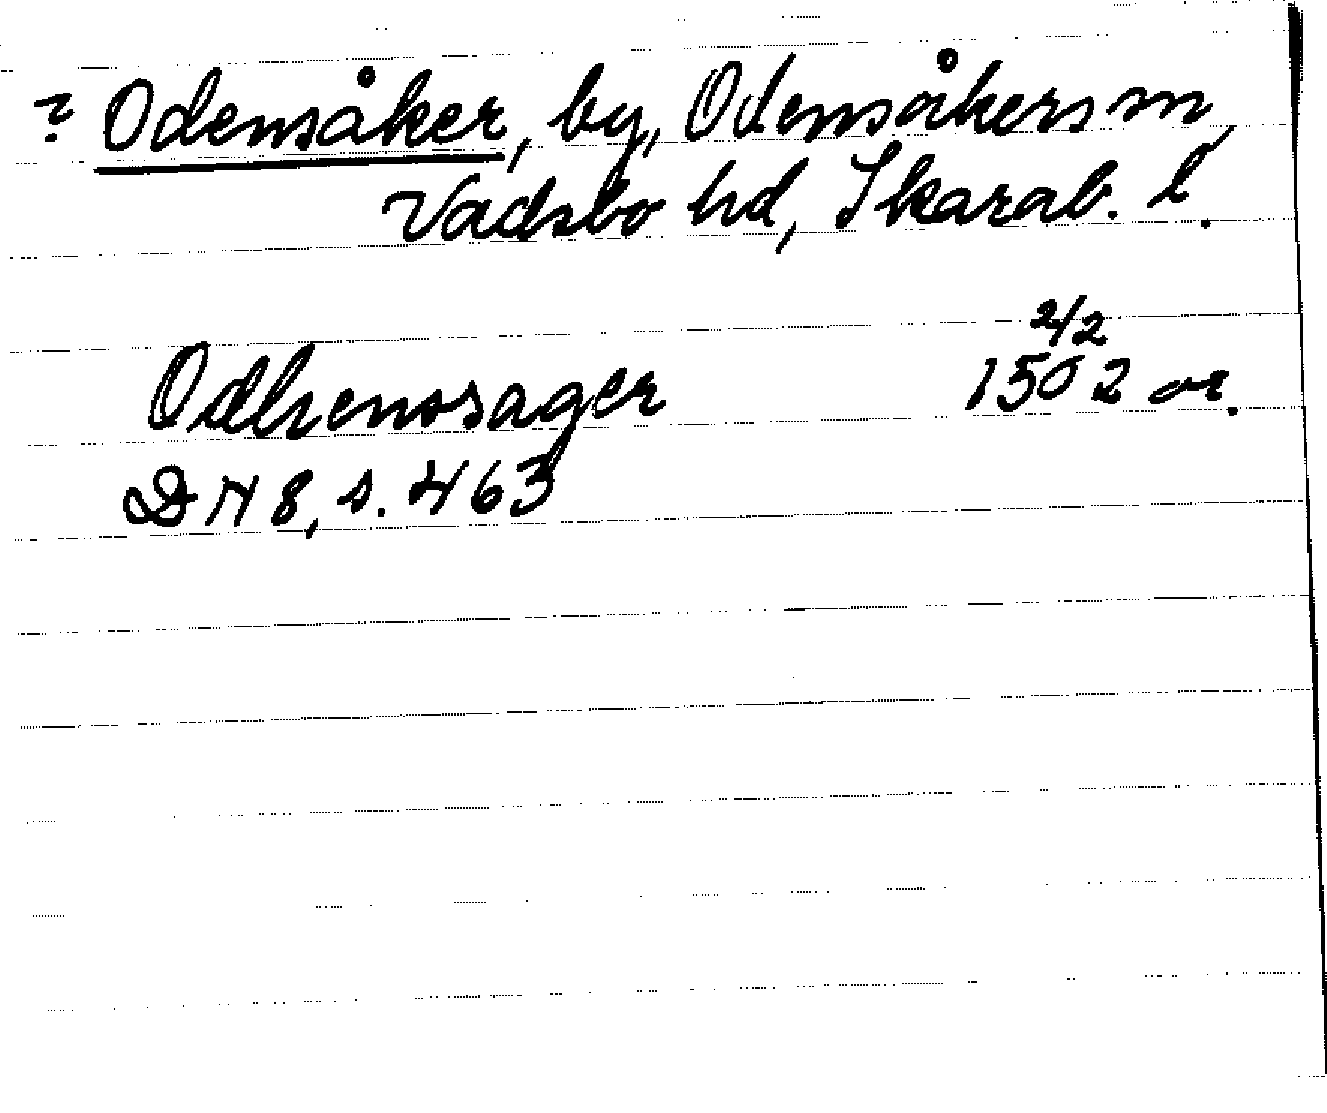 ? Odensåker, by, Odensåkers sn,
Vadsbo hd, Skarab. l.
Odhenssager 2/2 1502 or.
DN 8, s. 463